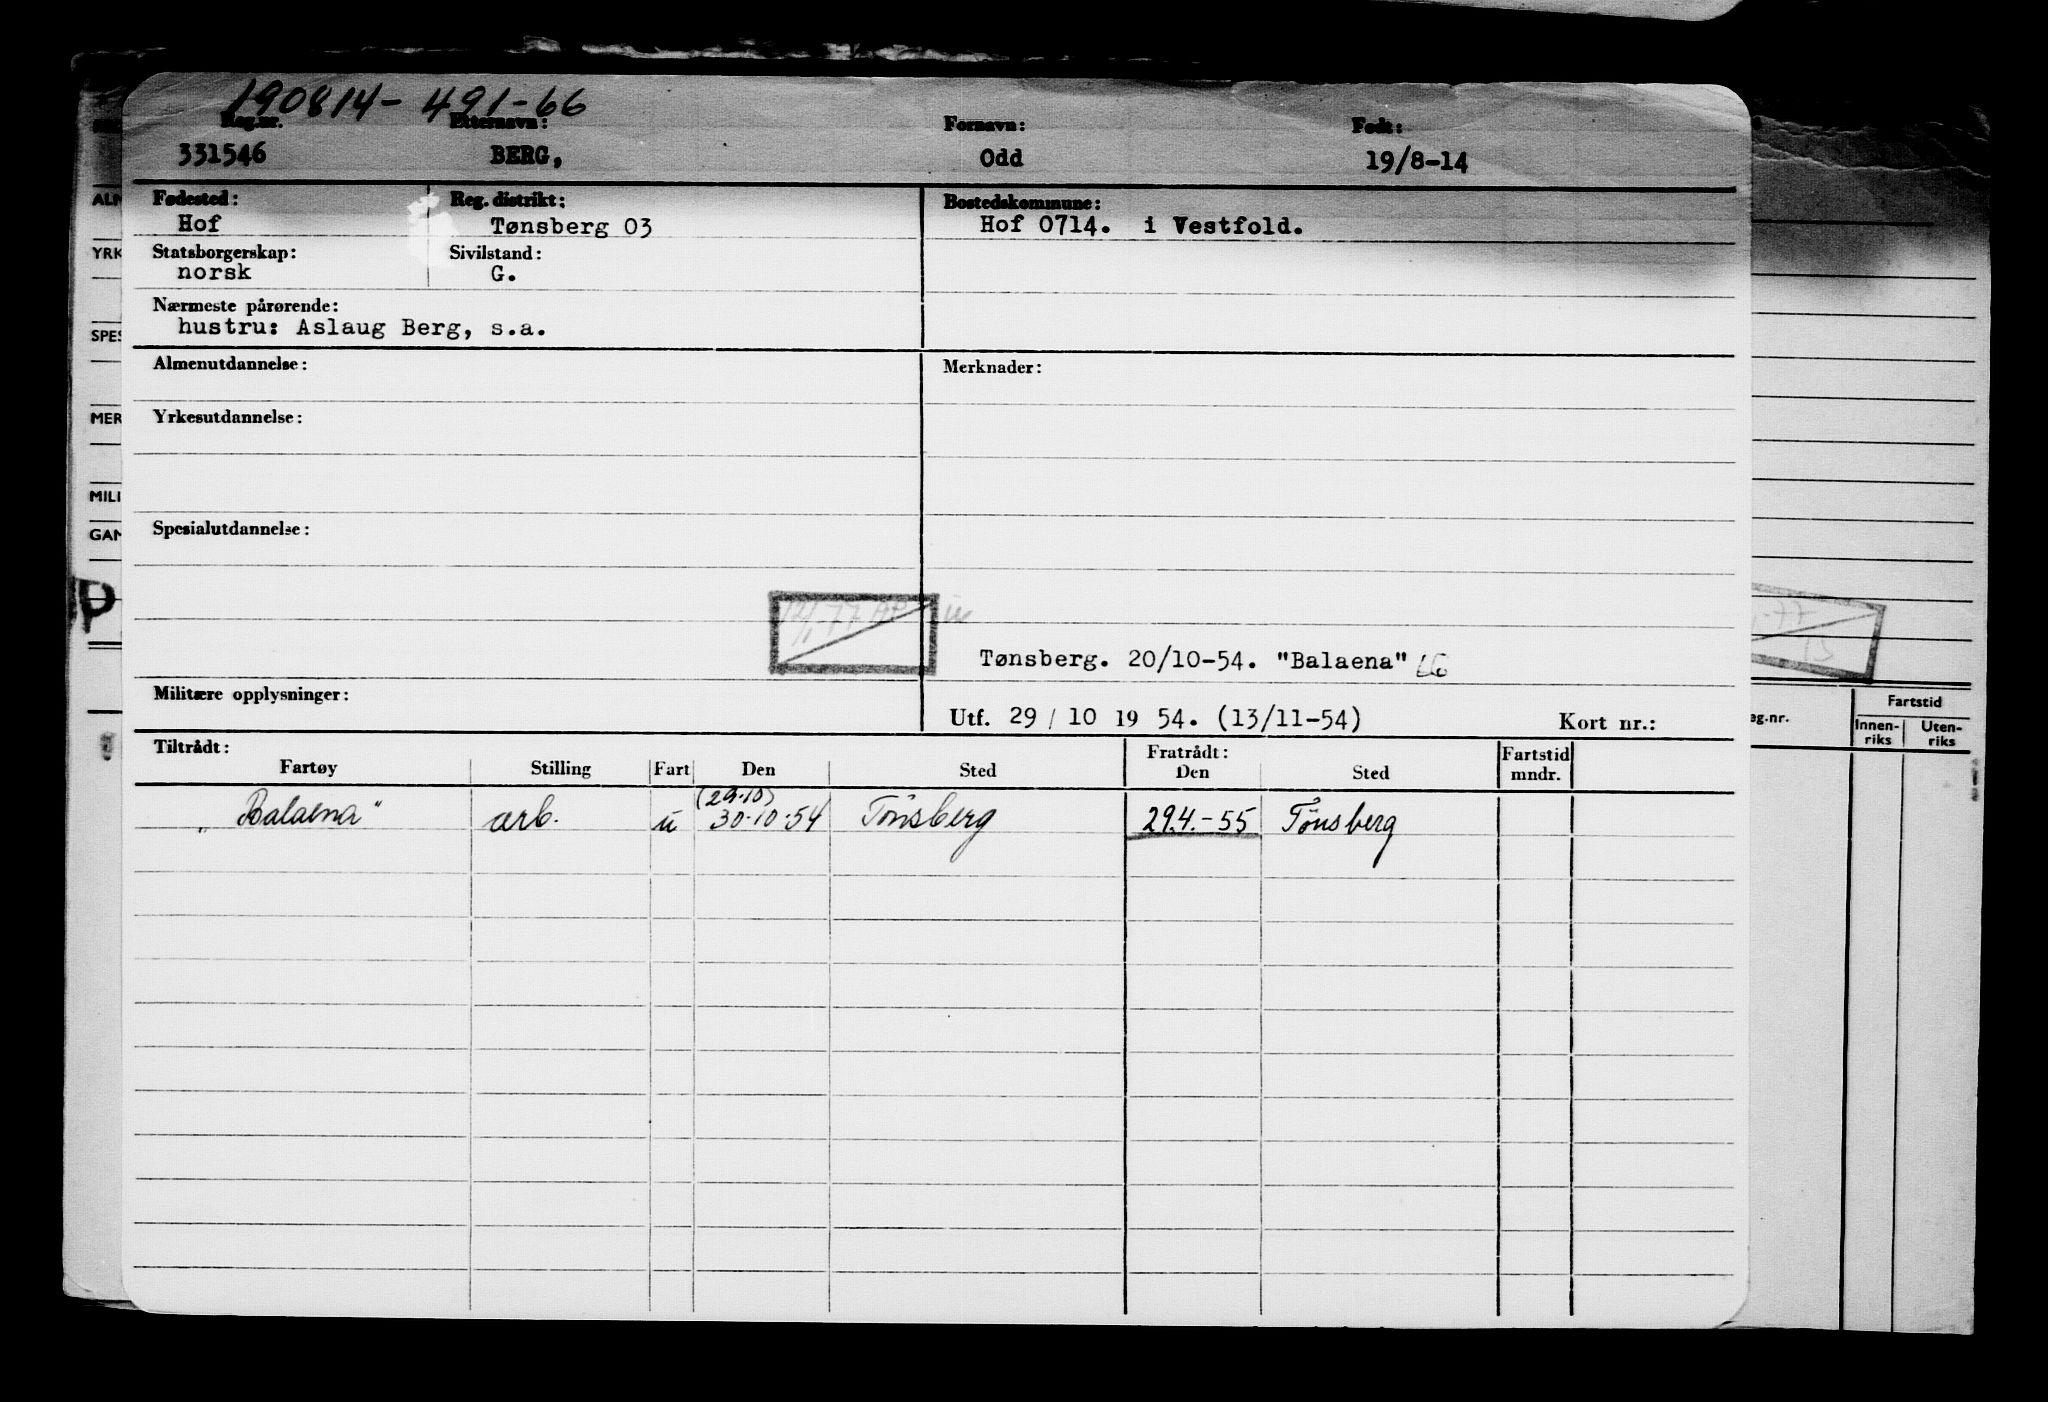 190814-491-66
Reg.nr. Etternavn: Fornavn: Født:
331546 BERG, Odd 19/8-14
Fødested: Reg. distrikt: Bostedskommune:
Hof Tønsberg 03 Hof 0714. i Vestfold.
Statsborgerskap: Sivilstand:
norsk G.
Nærmeste pårørende:
hustru: Aslaug Berg, s.a.
Almenutdannelse: Merknader:
Yrkesutdannelse:
Spesialutdannelse:
Tønsberg. 20/10-54. "Balaena"
Militære opplysninger:
Utf. 29 / 10 19 54. (13/11-54) Kort nr.:
Tiltrådt: Fratrådt: Fartstid
Fartøy Stilling Fart Den Sted Den Sted mndr.
(29.10)
„Balaena" arb. u 30.10.54 Tönsberg 29.4.-55 Tönsberg
ALM
YRK
SPES
MER
MILI
GAN
P
eg.nr.
Fartstid
Innen-
riks
Uten-
riks